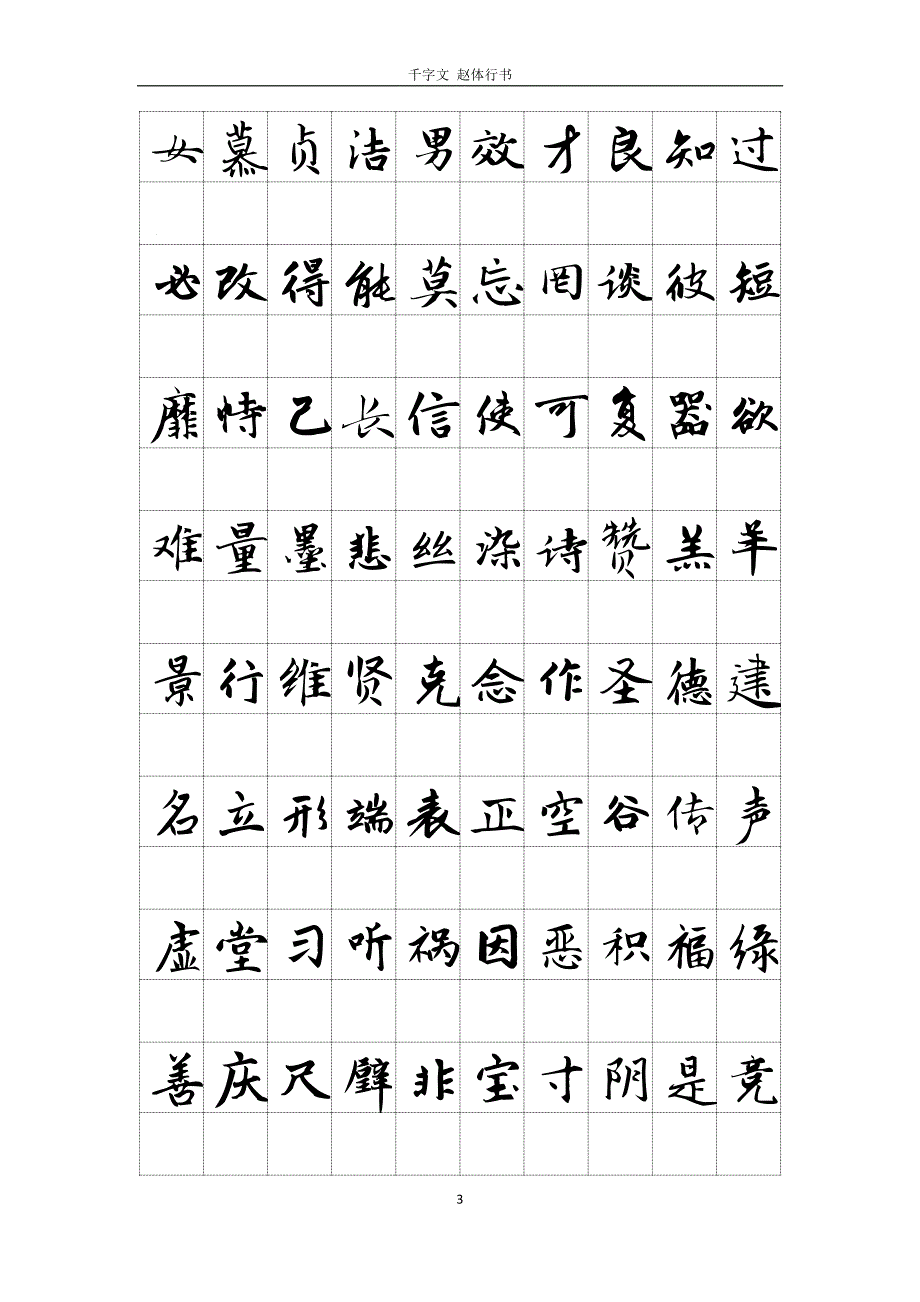 千字文 赵体行书
女慕贞洁男效才良知过
必改得能莫忘罔谈彼短
靡恃己长信使可复器欲
难量墨悲丝染诗赞羔羊
景行维贤克念作圣德建
名立形端表正空谷传声
虚堂习听祸因恶积福缘
善庆尺璧非宝寸阴是竞
3